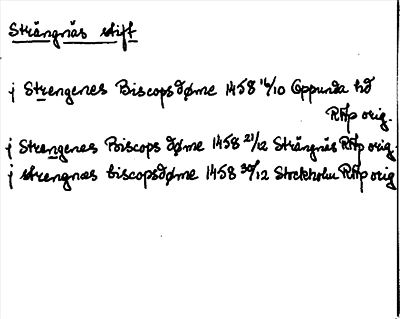 Strängnäs stift
j Strengenes Biscopsdøme 1458 16/10 Oppunda hd
RAp orig.
j Strengenes Biscopsdøme 1458 21/12 Strängnäs RAp orig.
j strengnæs biscopsdøme 1458 30/12 Stockholm RAp orig